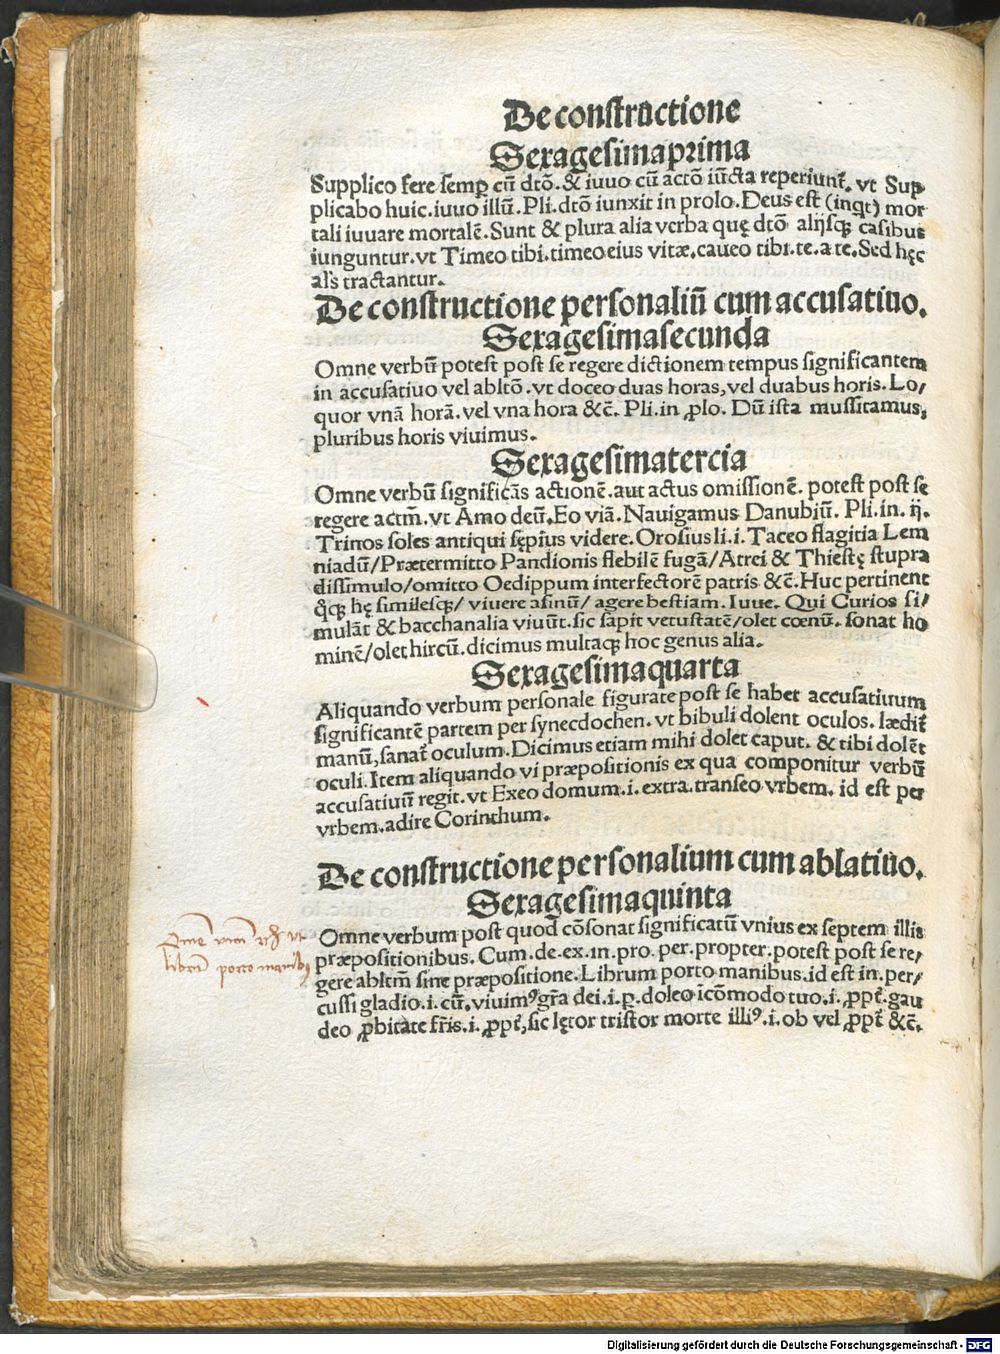 De constructione
Sexagesimaprima
Supplico fere semꝑ cū dtō. & iuuo cū actō iūcta reperiunt᷑. vt Sup-
plicabo huic. iuuo illū. Pli. dtō iunxit in prolo. Deus est (inqt) mor
tali iuuare mortalē. Sunt & plura alia verba quę dtō alijsqꝫ casibus
iunguntur. vt Timeo tibi. timeo eius vitæ. caueo tibi. te. a te. Sed hęc
al's tractantur.
De constructione personaliū cum accusatiuo.
Sexagesimasecunda
Omne verbū potest post se regere dictionem tempus significantem
in accusatiuo vel abltō. vt doceo duas horas, vel duabus horis. Lo/
quor vnā horā. vel vna hora &c̄. Pli. in ꝓlo. Dū ista mussitamus,
pluribus horis viuimus.
Sexagesimatercia
Omne verbū significās actionē. aut actus omissionē. potest post se
regere actm̄. vt Amo deū. Eo viā. Nauigamus Danubiū. Pli. in. ij.
Trinos soles antiqui sępius videre. Orosius li. i. Taceo flagitia Lem
niadū/Prætermitto Pandionis flebilē fugā/Atrei & Thiestę stupra
dissimulo/omitto Oedippum interfectorē patris &c̄. Huc pertinent
q̄qꝫ hę similesqꝫ/ viuere asinū/ agere bestiam. Iuue. Qui Curios si/
mulāt & bacchanalia viuūt. sic sapit vetustatē/olet cœnū. sonat ho
minē/olet hircū. dicimus multaqꝫ hoc genus alia.
Sexagesimaquarta
Aliquando verbum personale figurate post se habet accusatiuum
significantē partem per synecdochen. vt bibuli dolent oculos. lædit᷑
manū, sanat᷑ oculum. Dicimus etiam mihi dolet caput. & tibi dolēt
oculi. Item aliquando vi præpositionis ex qua componitur verbū
accusatiuū regit. vt Exeo domum. i. extra. transeo vrbem. id est per
vrbem. adire Corinthum.
De constructione personalium cum ablatiuo.
Sexagesimaquinta
Omne verbum post quod cōsonat significatū vnius ex septem illis
præpositionibus. Cum. de. ex. in. pro. per. propter. potest post se re/
gere abltm̄ sine præpositione. Librum porto manibus. id est in. per/
cussi gladio. i. cū. viuimꝰ gr̄a dei. i. ꝑ. doleo icōmodo tuo. i. ꝓpt᷑. gau
deo ꝓbitate fr̄is. i. ꝓpt᷑, sic lętor tristor morte illiꝰ. i. ob vel ꝓpt᷑ &c̄.
vt
librū porto manibꝰ
Digitalisierung gefördert durch die Deutsche Forschungsgemeinschaft - DFG